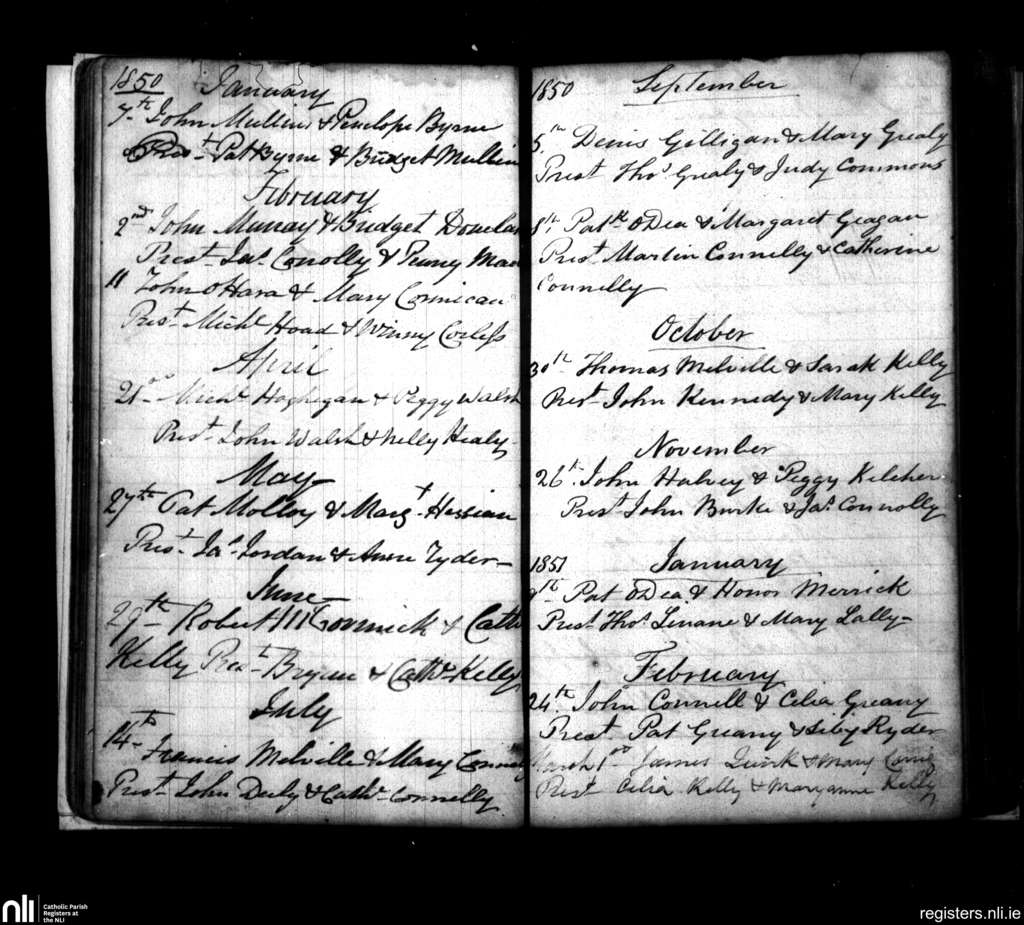 1850 January
7th John Mullins & Penelope Byrne
Prest Pat Byrne & Bridget Mullin
February
2nd John Murray & Bridget Donelan
Prest Jas Conolly & Penny Man
11 John O'Hara & Mary Cormican
Prest Michl Hoad & Winny Corless
April
21st Michl Hoghegan & Peggy Walsh
Prest John Walsh & Nelly Healy
May
27th Pat Molloy & Margt Hession
Prest Jas Jordan & Anne Ryder
June
29th Robert McCormick & Cath
Kelly Prest Bryan & Cathe Kelly
July
14th Francis Melville & Mary
Prest John Daly & Cathe Connelly
1850 September
5th Denis Gilligan & Mary Grealy
Prest Thos Grealy & Judy Commons
8th Patk O Dea & Margaret Geagan
Prest Martin Connelly & Catherine
Connelly
October
30th Thomas Melville & Sarah Kelly
Prest John Kennedy & Mary Kelly
November
26th John Halvey & Peggy Kelcher
Prest John Burke & Jas Connolly
1851 January
9th Pat O Dea & Honor Merrick
Prest Thos Linane & Mary Lally
February
24th John Connell & Celia Greany
Prest Pat Greany & Biby Ryder
March 1st James Quirk & Mary
Prest Celia Kelly & Maryanne Kelly
nli
Catholic Parish
Registers at
the NLI
registers.nli.ie